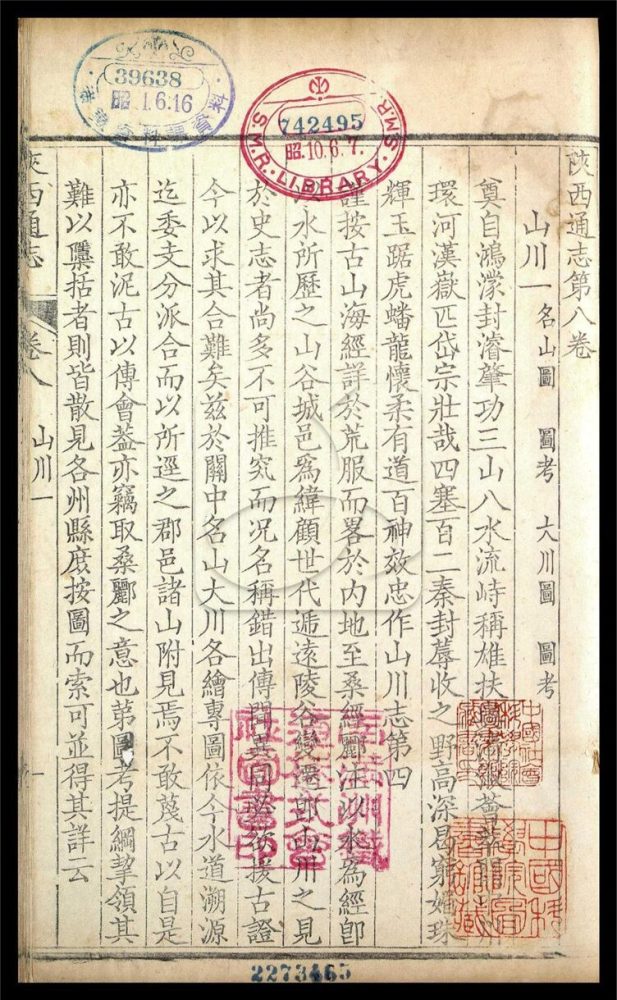 39638
昭1.6.16
742495
昭.10.6.7.
S.M.R. LIBRARY. S.M.R.
陝西通志第八卷
山川一 名山圖 圖考 大川圖 圖考
奠自鴻濛封濬肇功三山八水流峙稱雄扶薈
環河漢嶽匹岱宗壯哉四塞百二秦封蓐收之野高深曷窮媚珠
輝玉踞虎蟠龍懷柔有道百神效忠作山川志第四
謹按古山海經詳於荒服而畧於内地至桑經酈注以水爲經卽
水所歷之山谷城邑爲緯顧世代遞遠陵谷變遷卽山川之見
於史志者尚多不可推究而况名稱錯出傳聞異同必欲援古證
今以求其合難矣兹於關中名山大川各繪專圖依今水道溯源
迄委支分派合而以所逕之郡邑諸山附見焉不敢蔑古以自是
亦不敢泥古以傳會葢亦竊取桑酈之意也第圖考提綱挈領其
難以櫽括者則皆散見各州縣庻按圖而索可並得其詳云
陝西通志 卷八 山川一 一
2273465